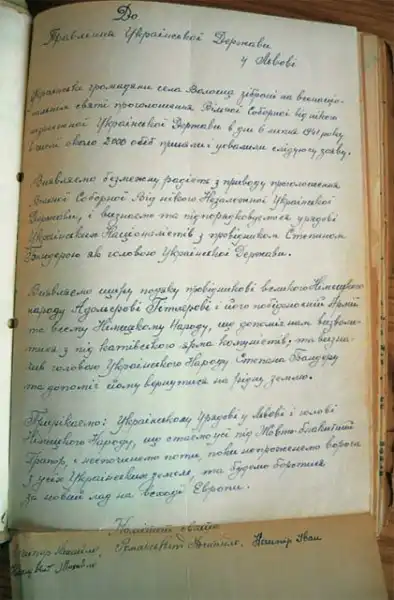 До
Правління Української Держави
у Львові
Українські громадяни села Волоща зібрані на всенаціо-
нальнім святі проголошення Вільної Соборної від нікого
незалежної Української Держави в дни 6 липня 1941 року
в числі около 2000 осіб приняли і ухвалили слідуючу заяву.
Виявляємо безмежну радість з приводу проголошення
Вільної Соборної Від нікого Незалежної Української
Держави, і визнаємо та підпорядковуємся урядові
Українських Націоналістів з провідником Степаном
Бандерою як головою Української Держави.
Виявляємо щиру подяку провідникові великого Німецького
народу Адольфові Гітлерові і його побідоносній Армії
та всему Німецькому Народу, що допоміг нам визволи-
тися з під катівського ярма комуністів, та визна-
чив головою Українського Народу Степана Бандеру
та допоміг йому вернутися на рідну землю.
Прирікаємо: Українському Урядові у Львові і голові
Німецького Народу, що стаємо усі під Жовто-блакитний
Прапор, і неспочинемо поти, поки непроженемо ворога
з усіх Українських земель, та будемо боротися
за новий лад на всході Европи.
Комітет свята
Михайло, Василь, Іван